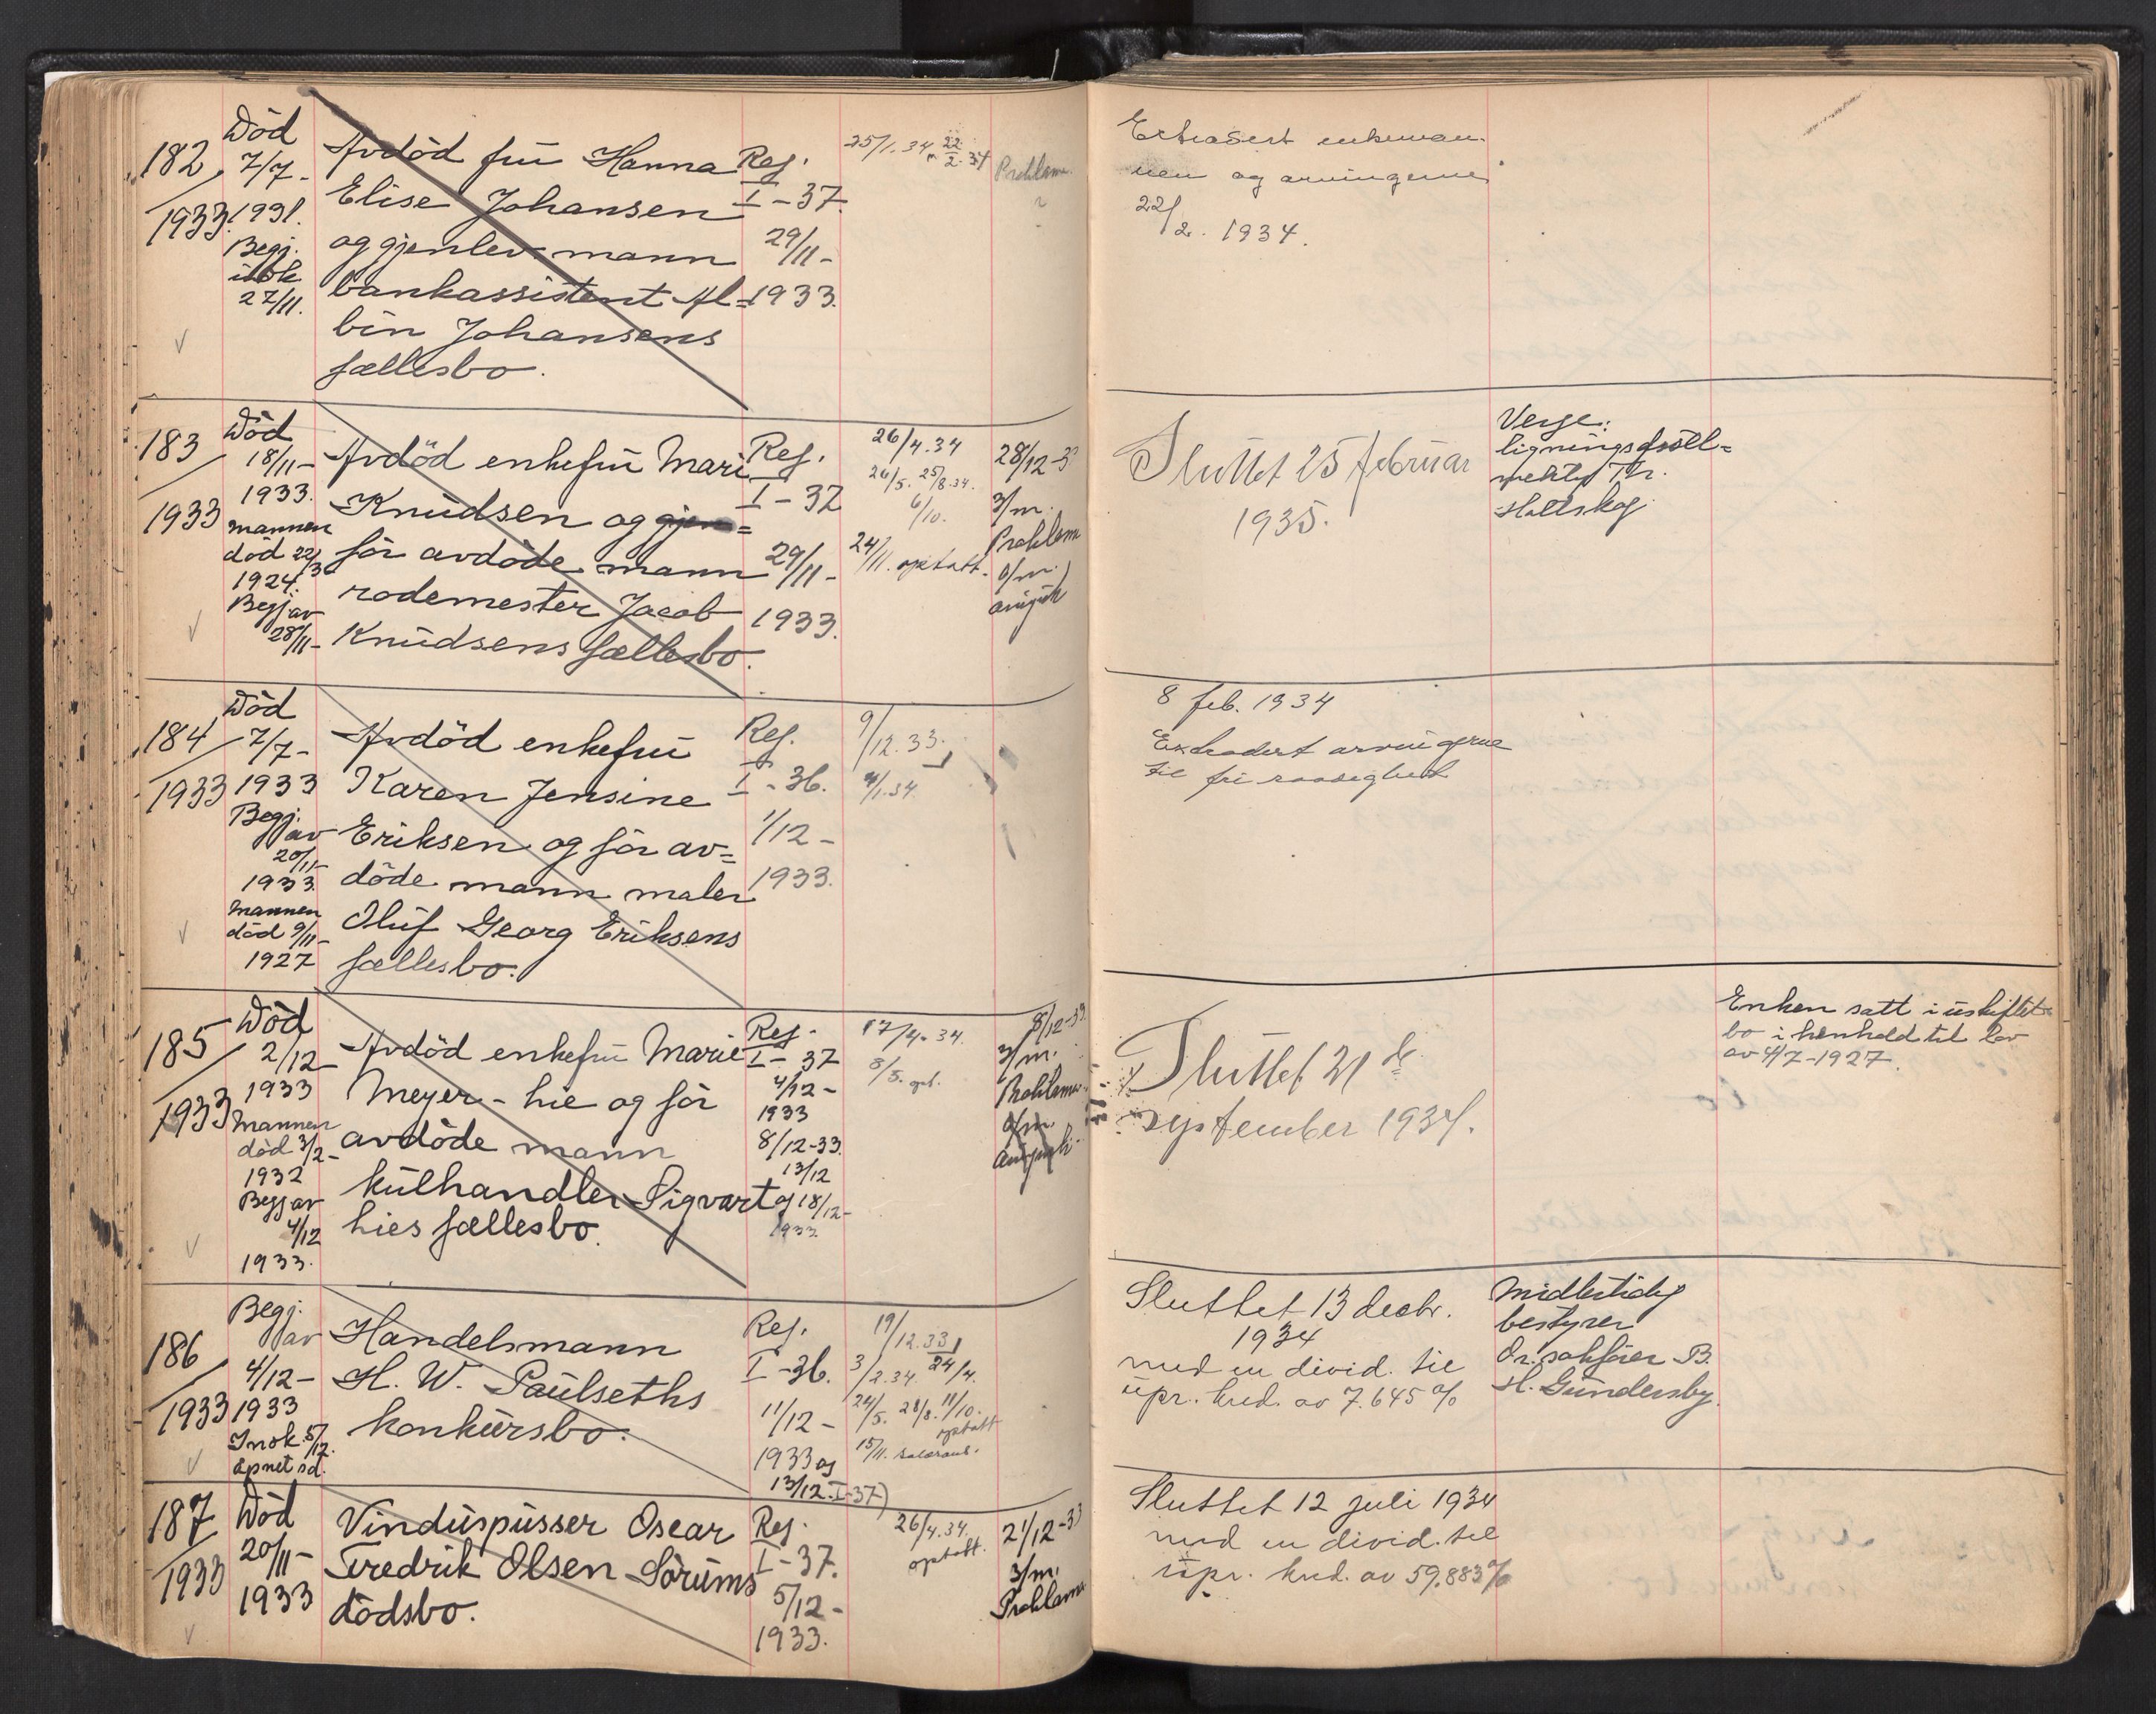 182
1933
Död
7/7-
1931.
Begj.
inok
27/11.
Avdöd frü Hanna
Elise Johansen
og gjenlev. mann
bankassistent Al=
bin Johansens
fællesbo.
Reg.
I-37.
29/11-
1933.
25/1.34. 22/2.34
Proklama
Extradert enkeman-
nen og arvingerne
22/2. 1934.
183
1933
Död
18/11-
1933.
mannen
död 22/3
1924.
Begj av
28/11-
Avdöd enkefrü Marie
Knüdsen og gjen=
för avdöde mann
rodemester Jacob
Knüdsens fællesbo.
Reg.
I-37
29/11-
1933.
26/4.34
26/5. 25/8.34.
6/10.
24/11. optatt.
28/12-33
3/m.
Proklama
Slüttet 25 februar
1935.
Verge:
184
1933
Död
7/7-
1933
Begj.
av
20/11-
1933.
Mannen
död 9/11-
1927
Avdöd enkefrü
Karen Jensine
Eriksen og för av=
döde mann maler
Olüf Georg Eriksens
fællesbo.
Reg.
I-36.
1/12-
1933.
9/12.33.
4/1.34.
8 feb. 1934
Extradert arvingerne
til fri raadighet
185
1933
Död
2/12-
1933
Mannen
död 3/2-
1932
Begj av
4/12
1933.
Avdöd enkefrü Marie
Meyer-hie og för
avdöde mann
külhandler Sigvart
hies fællesbo.
Reg.
I-37
4/12-
1933
8/12-33.
13/12
og 18/12-
1933.
17/4.34.
8/5.
8/12-33
3/m.
Proklama
Slüttet 21de
september 1934.
Enken satt i üskiftet
bo i henhold til lov
av 4/7-1927.
186
1933
Begj.
av
4/12-
1933
Inok. 5/12.
åpnet sd.
Handelsmann
H. W. Paülseths
konkürsbo.
Reg.
I-36.
11/12-
1933 og
13/12. I-37)
19/12.33
3/2.34. 24/4.
24/5. 28/8. 11/10.
optatt
15/11.
Sluttet 13 decbr.
1934
med en divid. til
üpr. kred. av 7.645 %
Midlertidig
bestyrer
O.r. sakförer B.
H. Gündersby.
187
1933
Död
20/11-
1933
Vindüspüsser Oscar
Fredrik Olsen Sörüms
dödsbo.
Reg.
I-37.
5/12-
1933.
26/4.34.
optatt.
21/12-33
3/m.
Proklama
Sluttet 12 juli 1934
med en divid. til
üpr. kred. av 59.883%